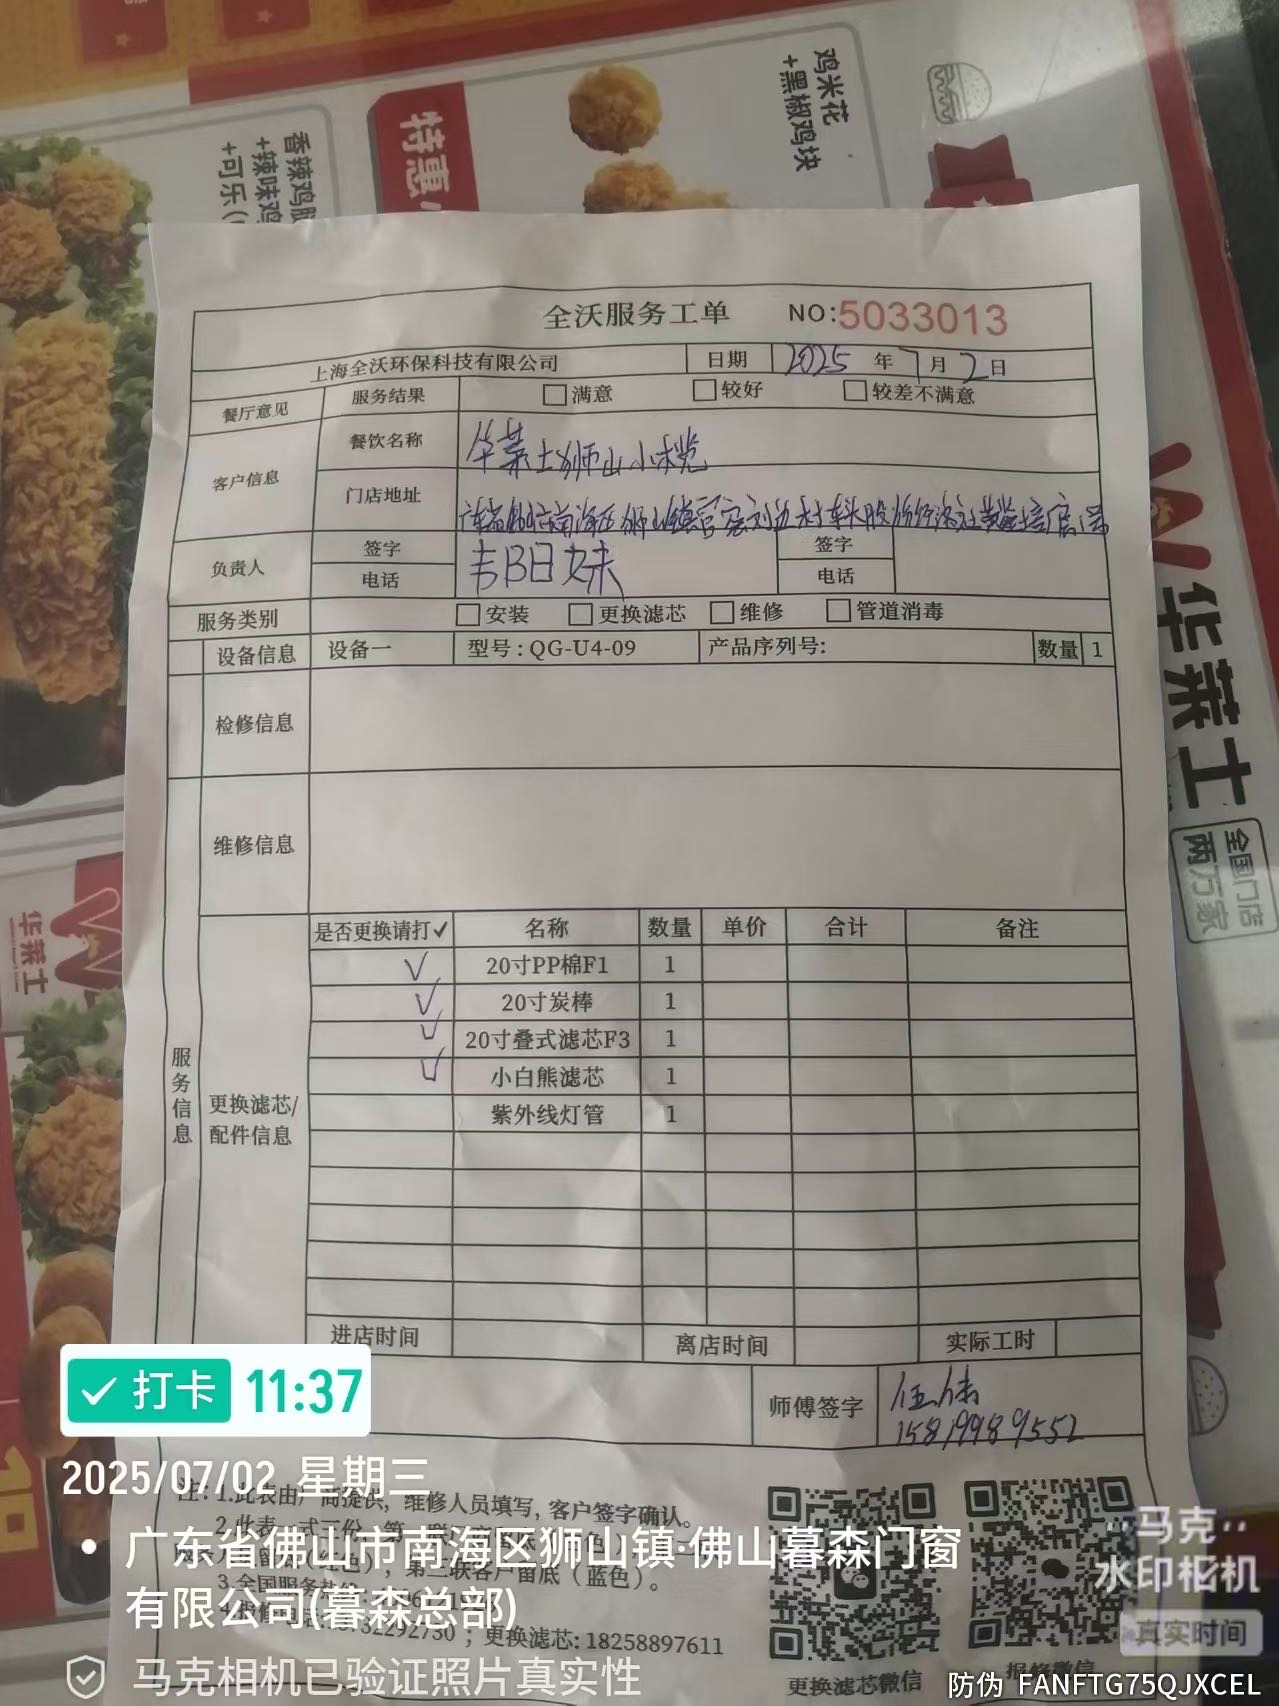 鸡米花
+黑椒鸡块
特惠
+辣味鸡
+可乐
全沃服务工单 NO:5033013
上海全沃环保科技有限公司 日期 2025 年 7 月 2 日
餐厅意见 服务结果 满意 较好 较差不满意
客户信息 餐饮名称 华莱士狮山小榄
门店地址
负责人 签字 签字
电话 电话
服务类别 安装 更换滤芯 维修 管道消毒
设备信息 设备一 型号:QG-U4-09 产品序列号: 数量 1
检修信息
维修信息
服务信息
更换滤芯/
配件信息
是否更换请打✓ 名称 数量 单价 合计 备注
✓ 20寸PP棉F1 1
✓ 20寸炭棒 1
✓ 20寸叠式滤芯F3 1
✓ 小白熊滤芯 1
紫外线灯管 1
进店时间 离店时间 实际工时
师傅签字
15819989552
注: 1.此表由厂商提供, 维修人员填写, 客户签字确认。
第三联客户留底(蓝色)。
3.全国服务热
; 更换滤芯: 18258897611
更换滤芯微信 报修微信
华莱士
全国门店
两万家
华莱士
打卡 11:37
2025/07/02 星期三
广东省佛山市南海区狮山镇·佛山暮森门窗
有限公司(暮森总部)
马克相机已验证照片真实性
马克
水印相机
真实时间
防伪 FANFTG75QJXCEL